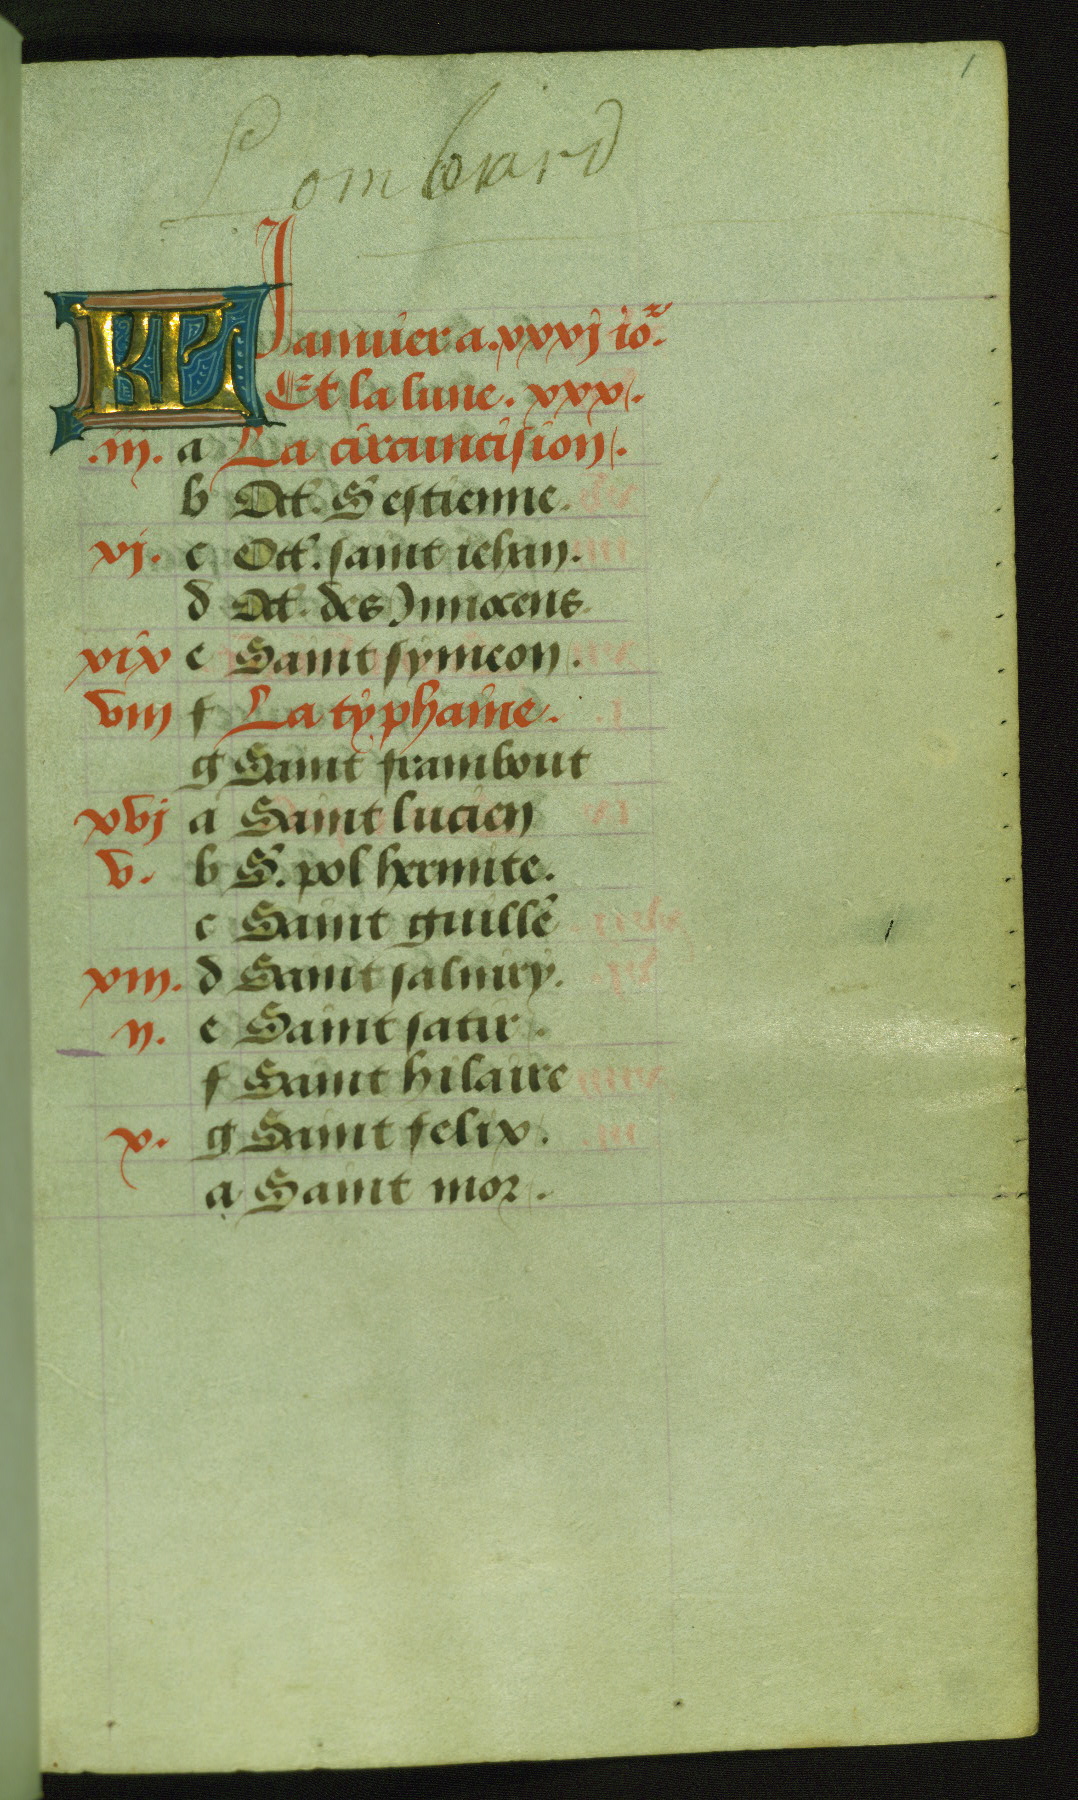 1
Lombard
KL Januier a. xxxj io͛.
Et la lune. xxx.
.iij. a La circuncision.
b Oct. S estienne.
vj. c Oct. saint iehan.
d Oct. des Jnnocens.
xix e Saint symeon.
viii f La typhaine.
g Saint frambout
xvj a Saint lucien
v. b S. pol hermite.
c Saint guillē
xiii. d Saint saluuy.
ii. e Saint satir.
f Saint hilaire
x. g Saint felix.
a Saint mor.